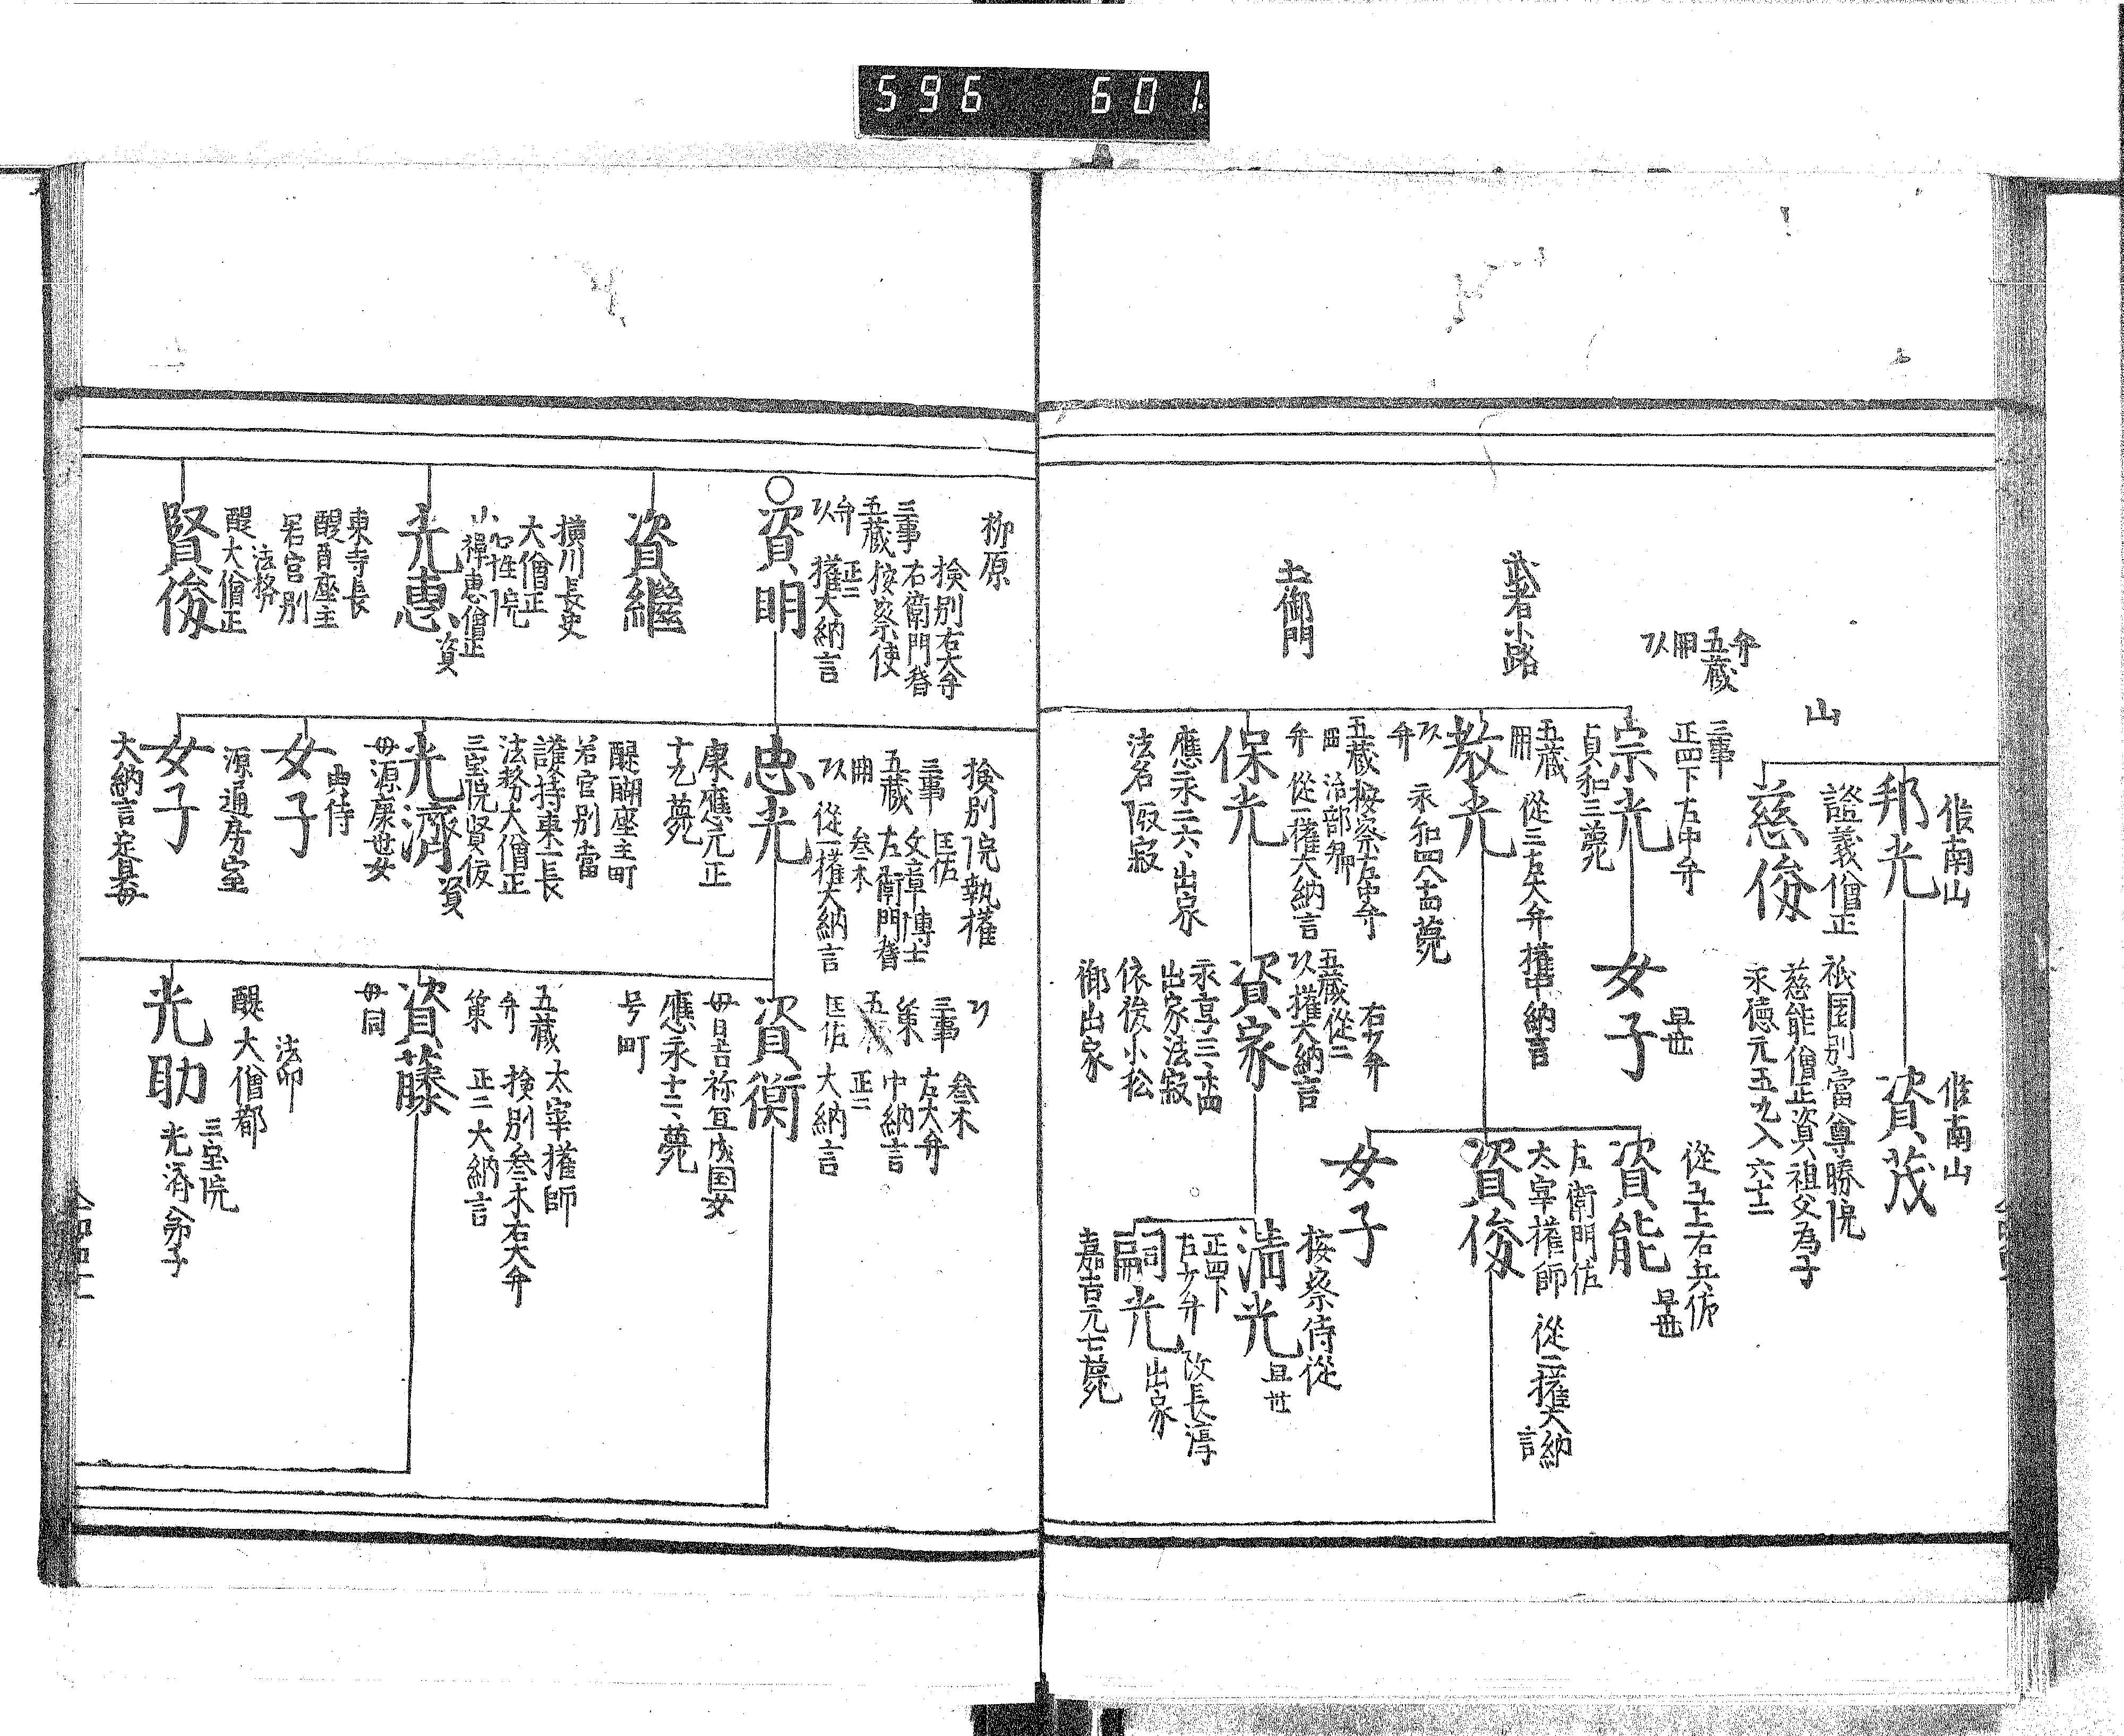 596 601
候南山
邦光
候南山
資茂
山
證義僧正
慈俊
祇園別當尊勝院
慈能僧正資祖父為子
永德元五九入六十二
弁
五蔵
三事
正四下左中弁
宗光
貞和三薨
早世
女子
武者小路
五蔵
從三左大弁權中納言
教光
弁
永和四八十四薨
從五上右兵佐
資能
早世
左衛門佐
太宰權帥
從二權大納言
資俊
女子
土御門
五蔵按察左中弁
治部卿
弁 從一權大納言
保光
應永二六、出家
法名
右少弁
五蔵從二
權大納言
資家
永享三
出家法寂
依後小松
御出家
按察侍從
満光
早世
正四下
左少弁 改長淳
嗣光
出家
嘉吉元七薨
柳原
検別右大弁
三事 右衛門督
五蔵 按察使
弁 正二
權大納言
資明
資繼
横川長吏
大僧正
心性院
禅恵僧正
光恵
資
東寺長
醍醐座主
若宮別
法務
醍大僧正
賢俊
検別院執權
三事 匡佐
五蔵 文章博士
左衛門督
参木
從一權大納言
忠光
康應元正
十九薨
醍醐座主町
若宮別當
護持東一長
法務大僧正
三宝院賢俊
光濟
資
母源康世女
典侍
女子
源通房室
女子
大納言定具母
参木
三事 左大弁
策 中納言
五蔵 正二
匡佐 大納言
資衡
母日吉祢宜成国女
應永十二、薨
号町
五蔵 太宰權帥
弁 検別参木右大弁
策 正二大納言
資藤
母同
法印
醍大僧都
光助
三宝院
光済弟子